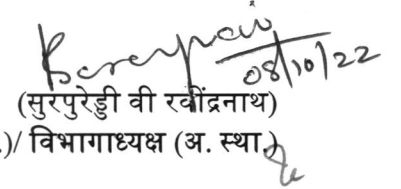 08/10/22
(सुरपुरेड्डी वी रवींद्रनाथ)
.)/ विभागाध्यक्ष (अ. स्था.)